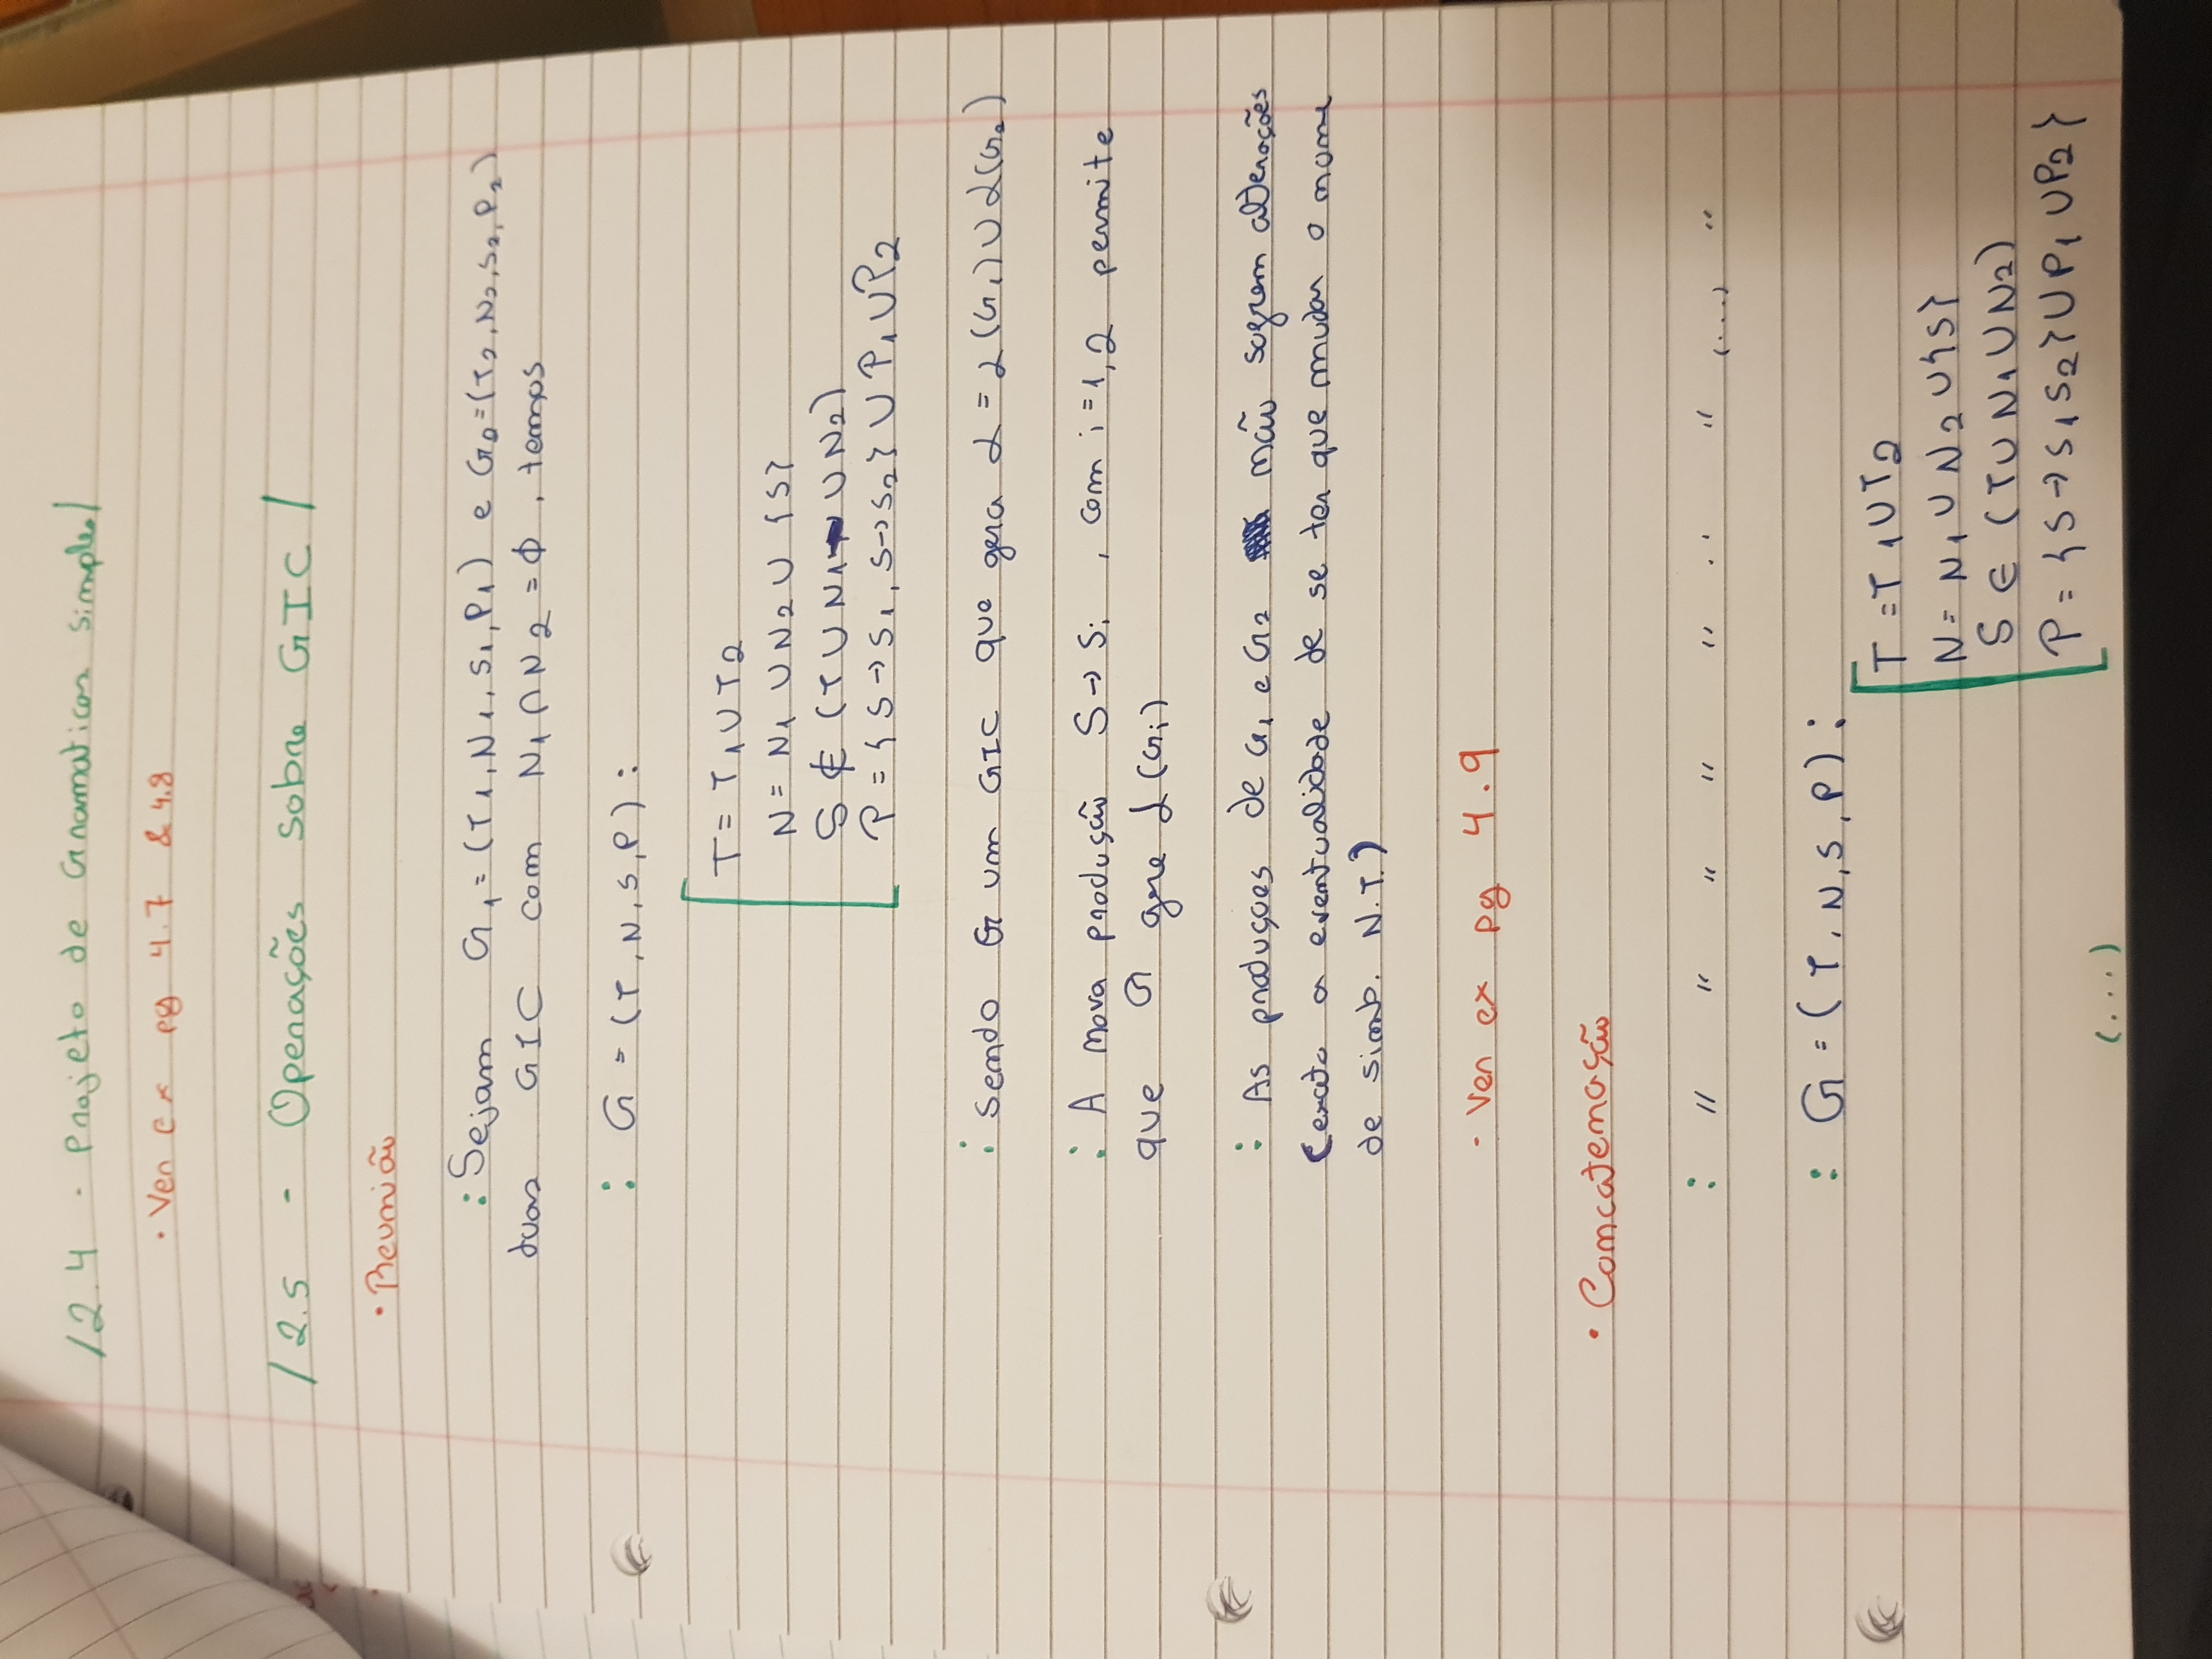 /2.4 - Projeto de Gramaticas simples/
• Ver ex pg 4.7 & 4.8
/2.5 - Operações sobre GIC/
• Reunião
: Sejam G₁=(T₁,N₁,S₁,P₁) e G₂=(T₂,N₂,S₂,P₂)
duas GIC com N₁∩N₂=ϕ, temos
: G = (T,N,S,P):
T = T₁∪T₂
N = N₁∪N₂∪{S}
S ∉ (T∪N₁∪N₂)
P = {S→S₁, S→S₂}∪P₁∪P₂
: Sendo G um GIC que gera L = L(G₁)∪L(G₂)
: A nova produção S→Sᵢ, com i=1,2 permite
que G gere L(Gᵢ)
: As produçoes de G₁ e G₂ não sofrem alterações
(exceto a eventualidade de se ter que mudar o nome
de simb. N.T.)
- Ver ex pg 4.9
• Concatenação
: " " " " " " " (...) "
: G = (T,N,S,P):
T = T₁∪T₂
N = N₁∪N₂∪{S}
S ∈ (T∪N₁∪N₂)
P = {S→S₁S₂}∪P₁∪P₂}
(...)